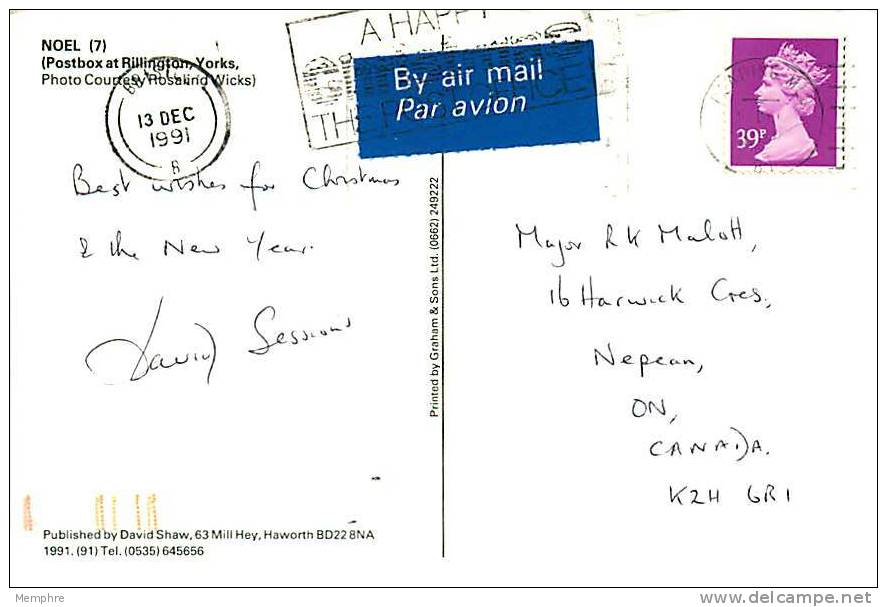 NOEL (7)
(Postbox at Rillington, Yorks,
Photo Courtesy Rosalind Wicks)
13 DEC
1991
B
A HAPPY
THE POST OFFICE
By air mail
Par avion
39P
Best wishes for Christmas
& the New Year.
David Sessions
Printed by Graham & Sons Ltd. (0662) 249222
Major RK Malott,
16 Harwick Cres,
Nepean,
ON,
CANADA.
K2H 6R1
Published by David Shaw, 63 Mill Hey, Haworth BD22 8NA
1991. (91) Tel. (0535) 645656
Memphre
delcampe.net